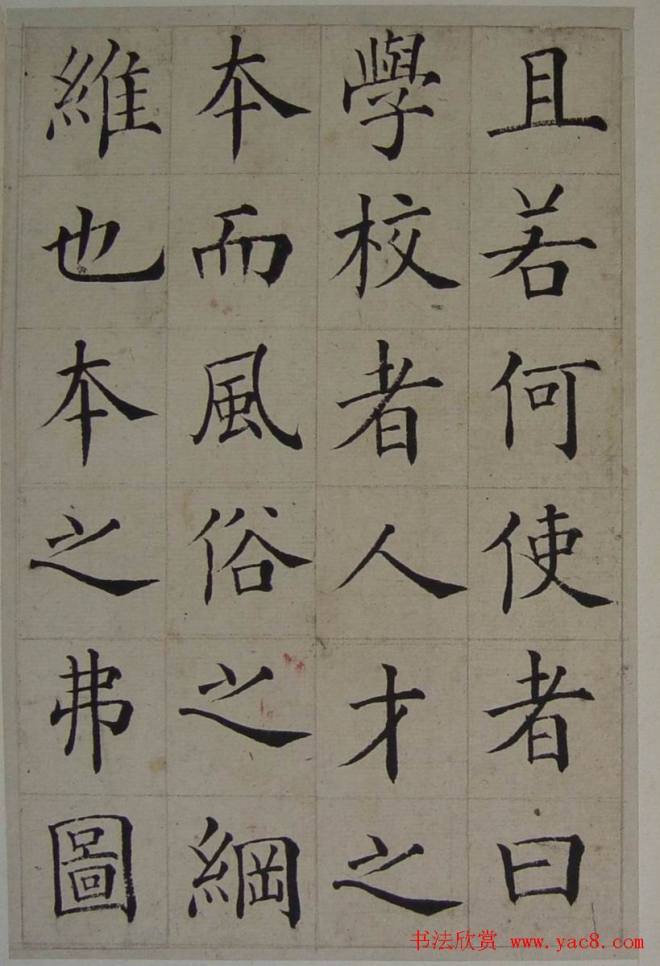 且若何使者曰
學校者人才之
本而風俗之綱
維也本之弗圖
书法欣赏 www.yac8.com